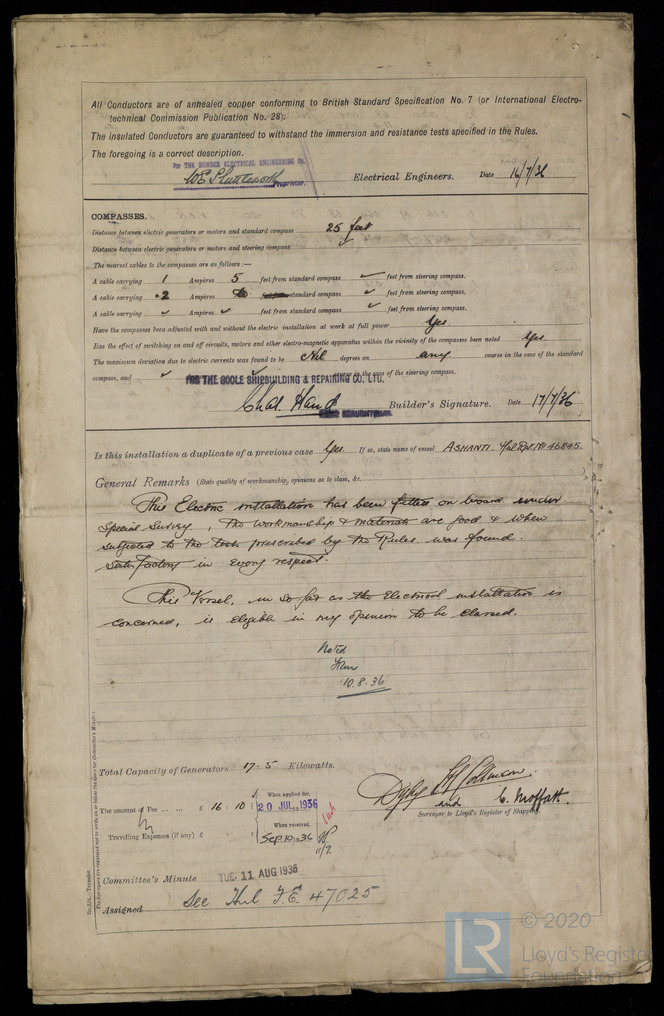 All Conductors are of annealed copper conforming to British Standard Specification No. 7 (or International Electro-
technical Commission Publication No. 28).
The insulated Conductors are guaranteed to withstand the immersion and resistance tests specified in the Rules.
The foregoing is a correct description.
FOR THE HUMBER ELECTRICAL ENGINEERING Co.
Proprietor. Electrical Engineers. Date 16/7/36
COMPASSES.
Distance between electric generators or motors and standard compass 25 feet
Distance between electric generators or motors and steering compass
The nearest cables to the compasses are as follows:—
A cable carrying 1 Ampères 5 feet from standard compass feet from steering compass.
A cable carrying .2 Ampères to standard compass feet from steering compass.
A cable carrying Ampères feet from standard compass feet from steering compass.
Have the compasses been adjusted with and without the electric installation at work at full power Yes
Has the effect of switching on and off circuits, motors and other electro-magnetic apparatus within the vicinity of the compasses been noted Yes.
The maximum deviation due to electric currents was found to be Nil degrees on any course in the case of the standard
compass, and course in the case of the steering compass.
FOR THE GOOLE SHIPBUILDING & REPAIRING CO. LTD.
Chas. Hand Builder's Signature. Date 17/7/36
Is this installation a duplicate of a previous case Yes If so, state name of vessel ASHANTI. Hul Rpt No 46845.
General Remarks (State quality of workmanship, opinions as to class, &c.
This Electric installation has been fitted on board under
Special Survey, the workmanship & materials are good & when
subjected to the tests prescribed by the Rules was found
satisfactory in every respect.
This Vessel, in so far as the Electrical installation is
concerned, is eligible in my opinion to be classed.
Noted
10.8.36
Total Capacity of Generators 17.5 Kilowatts.
The amount of Fee ... ... £ 16 : 10 :
When applied for,
20 JUL 1936
When received,
Travelling Expenses (if any) £ : :
Sep 10 1936
11/9
and C. Moffatt.
Surveyor to Lloyd's Register of Shipping.
Committee's Minute TUE. 11 AUG 1936
Assigned See Hul F.E. 47025
© 2020
LR
Lloyd's Register
Foundation